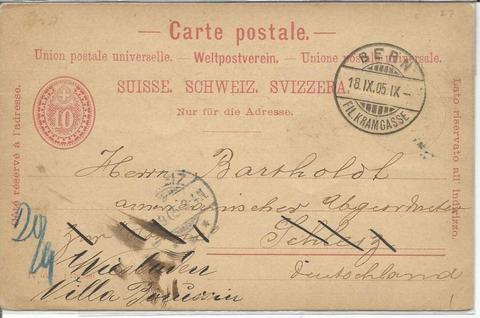 — Carte postale. —
Union postale universelle. — Weltpostverein. — Unione postale universale.
SUISSE. SCHWEIZ. SVIZZERA.
Nur für die Adresse.
Côté réservé à l'adresse.
10
Lato riservato all' indirizzo.
BERN
18.IX.05.IX –
FIL. KRAMGASSE
Herrn Bartholdt
amerikanischer Abgeordneter
Schleiz
Wiesbaden
Deutschland
Villa Borussia